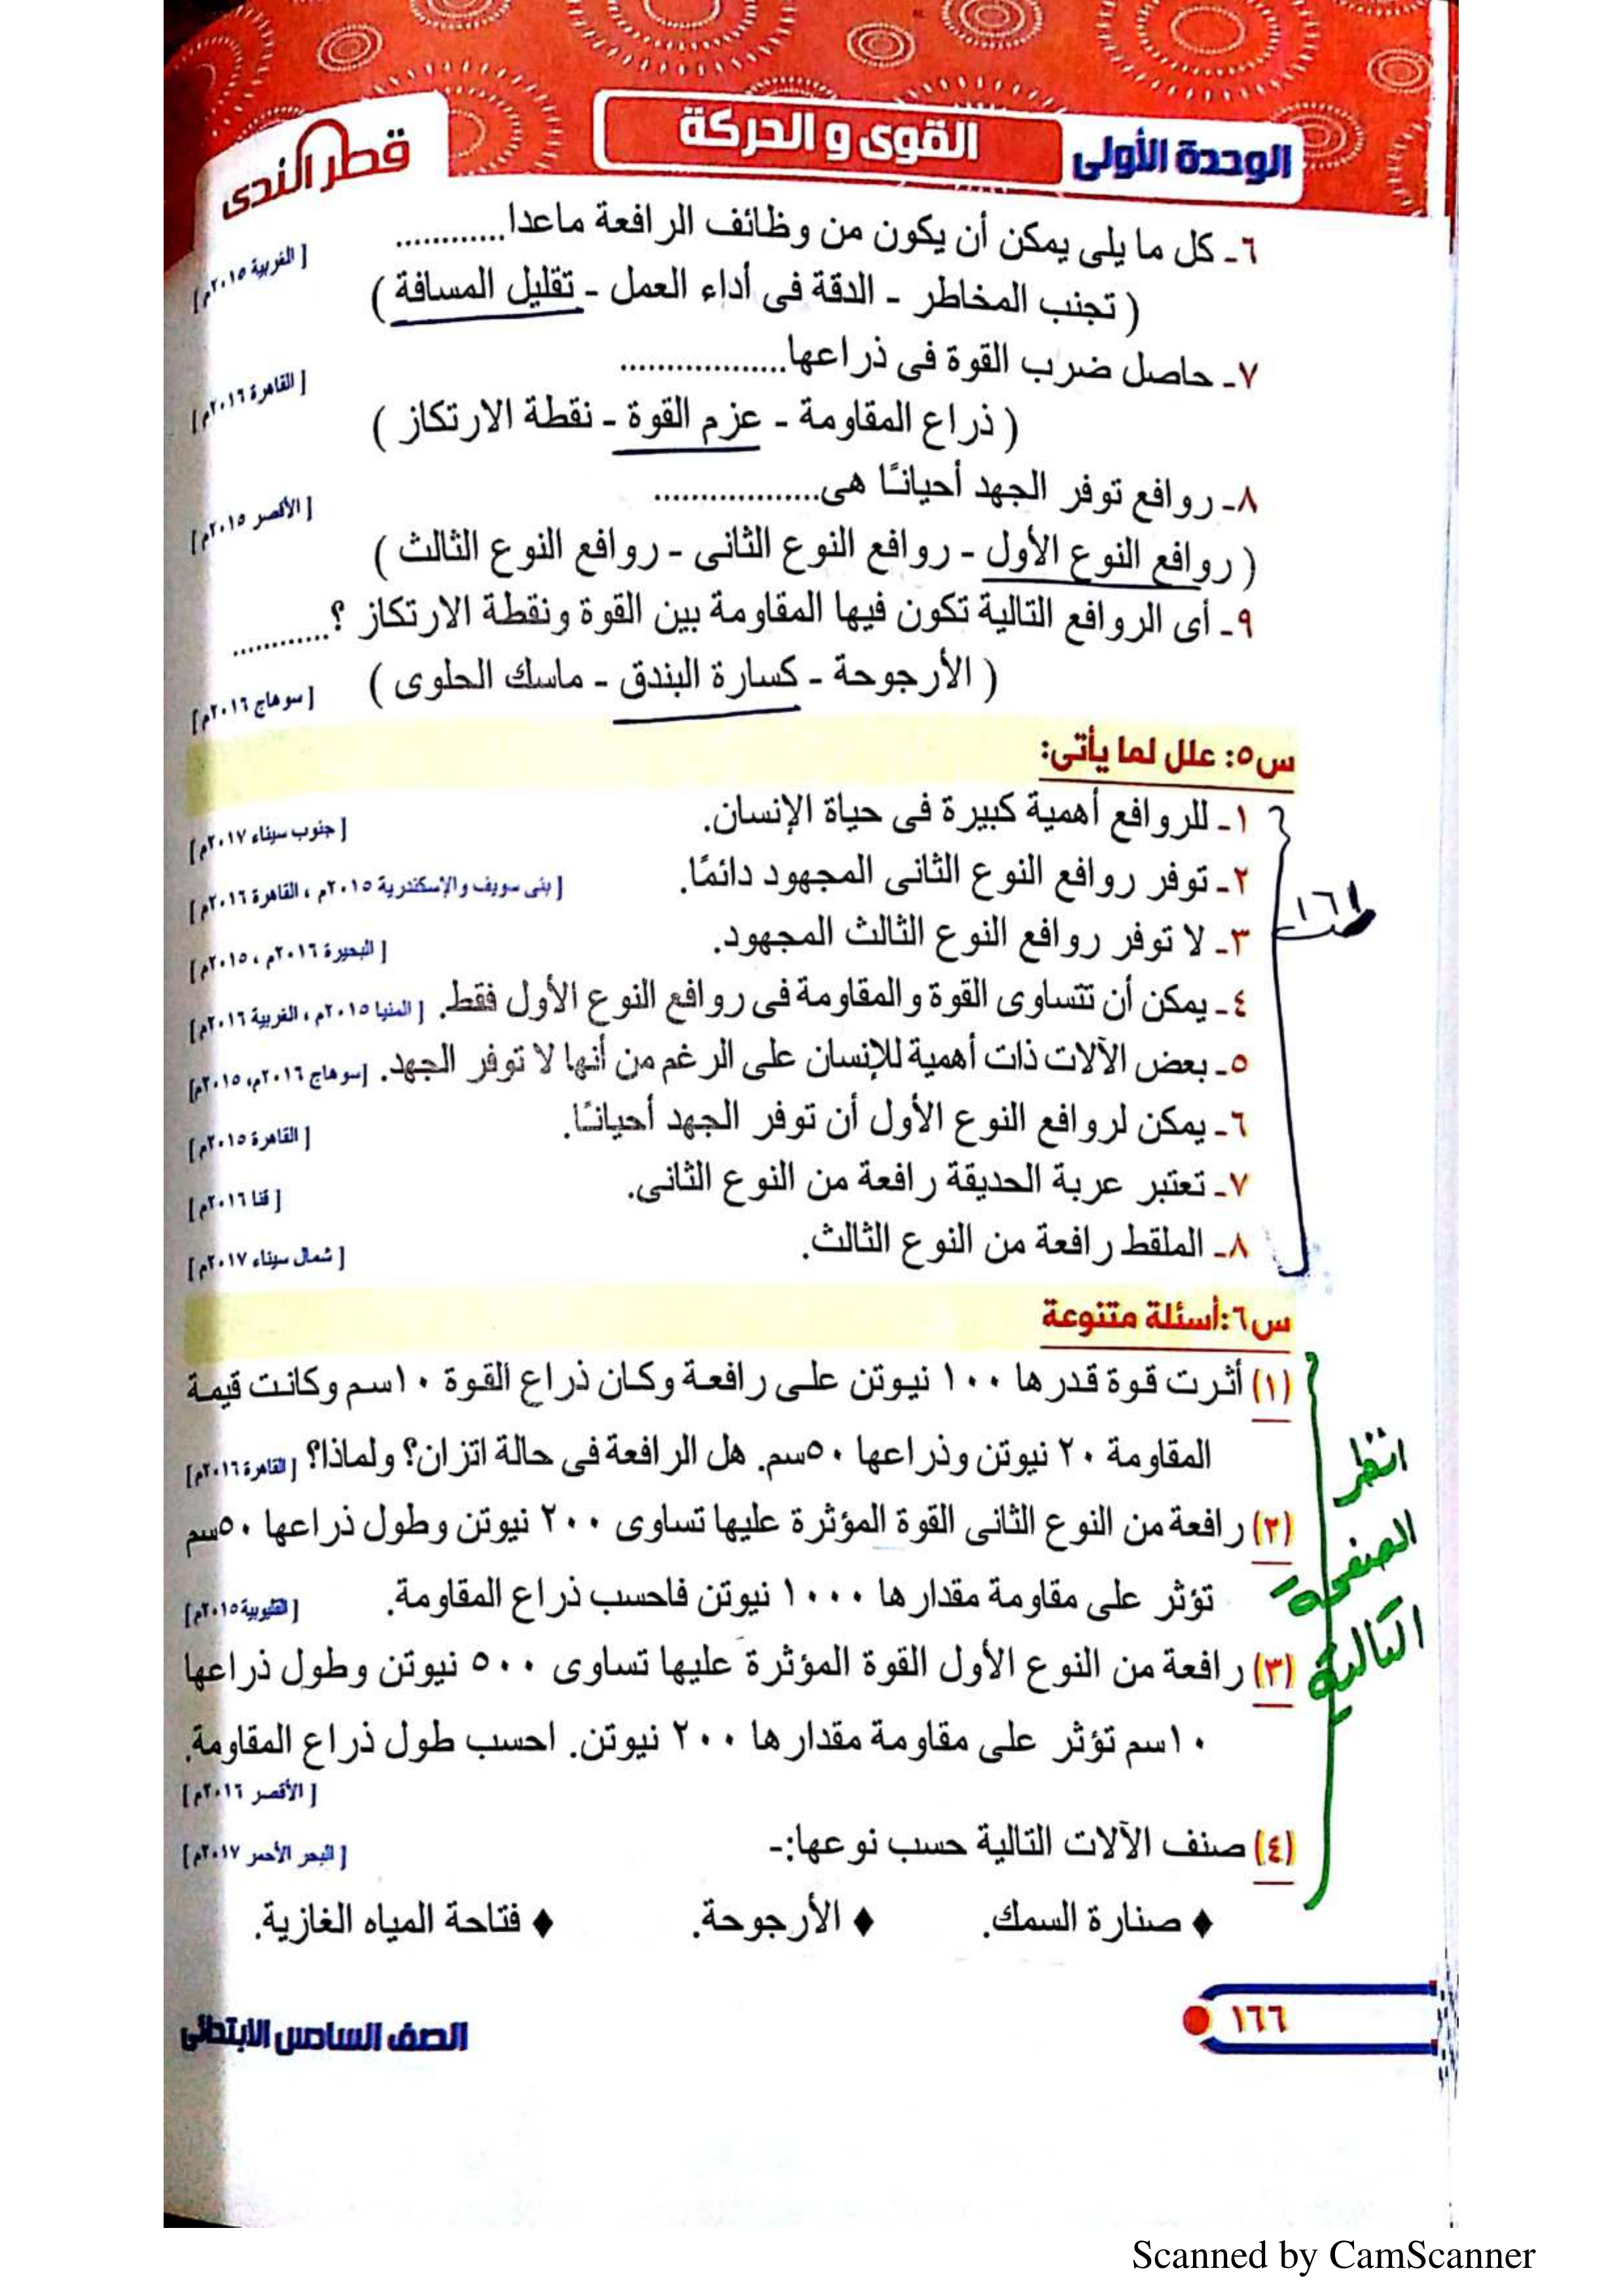 الوحدة الأولى القوى و الحركة قطر الندى
٦ـ كل ما يلى يمكن أن يكون من وظائف الرافعة ماعدا............ [ الغربية ٢٠١٥م]
( تجنب المخاطر ـ الدقة فى أداء العمل ـ تقليل المسافة )
٧ـ حاصل ضرب القوة فى ذراعها.................. [ القاهرة ٢٠١٦م]
( ذراع المقاومة ـ عزم القوة ـ نقطة الارتكاز )
٨ـ روافع توفر الجهد أحيانًا هى.................. [ الأقصر ٢٠١٥م]
( روافع النوع الأول ـ روافع النوع الثانى ـ روافع النوع الثالث )
٩ـ أى الروافع التالية تكون فيها المقاومة بين القوة ونقطة الارتكاز ؟............
( الأرجوحة ـ كسارة البندق ـ ماسك الحلوى ) [ سوهاج ٢٠١٦م]
س٥: علل لما يأتى:
١ـ للروافع أهمية كبيرة فى حياة الإنسان. [ جنوب سيناء ٢٠١٧م]
٢ـ توفر روافع النوع الثانى المجهود دائمًا. [ بنى سويف والإسكندرية ٢٠١٥م ، القاهرة ٢٠١٦م]
ص ١٦١
٣ـ لا توفر روافع النوع الثالث المجهود. [ البحيرة ٢٠١٦م ، ٢٠١٥م]
٤ـ يمكن أن تتساوى القوة والمقاومة فى روافع النوع الأول فقط. [ المنيا ٢٠١٥م ، الغربية ٢٠١٦م]
٥ـ بعض الآلات ذات أهمية للإنسان على الرغم من أنها لا توفر الجهد. [سوهاج ٢٠١٦م، ٢٠١٥م]
٦ـ يمكن لروافع النوع الأول أن توفر الجهد أحيانًا. [ القاهرة ٢٠١٥م]
٧ـ تعتبر عربة الحديقة رافعة من النوع الثانى. [ قنا ٢٠١٦م]
٨ـ الملقط رافعة من النوع الثالث. [ شمال سيناء ٢٠١٧م]
س٦:أسئلة متنوعة
(١) أثرت قوة قدرها ١٠٠ نيوتن على رافعة وكان ذراع القوة ١٠سم وكانت قيمة
المقاومة ٢٠ نيوتن وذراعها ٥٠سم. هل الرافعة فى حالة اتزان؟ ولماذا؟ [ القاهرة ٢٠١٦م]
انظر
(٢) رافعة من النوع الثانى القوة المؤثرة عليها تساوى ٢٠٠ نيوتن وطول ذراعها ٥٠سم
الصفحة
تؤثر على مقاومة مقدارها ١٠٠٠ نيوتن فاحسب ذراع المقاومة. [ القليوبية ٢٠١٥م]
التالية
(٣) رافعة من النوع الأول القوة المؤثرة عليها تساوى ٥٠٠ نيوتن وطول ذراعها
١٠سم تؤثر على مقاومة مقدارها ٢٠٠ نيوتن. احسب طول ذراع المقاومة.
[ الأقصر ٢٠١٦م]
(٤) صنف الآلات التالية حسب نوعها:- [ البحر الأحمر ٢٠١٧م]
♦ صنارة السمك. ♦ الأرجوحة. ♦ فتاحة المياه الغازية.
١٦٦ الصف السادس الابتدائى
Scanned by CamScanner